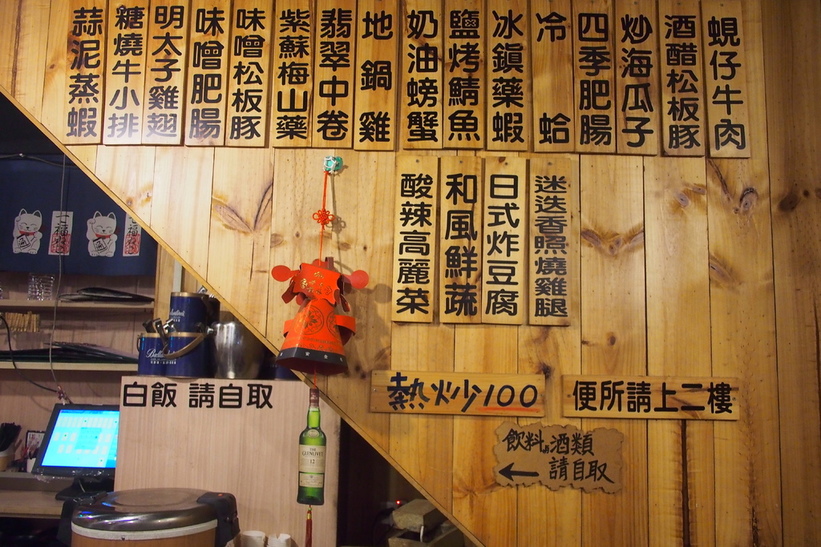 蜆仔牛肉
酒醋松板豚
炒海瓜子
四季肥腸
冷蛤
冰鎮藥蝦
鹽烤鯖魚
奶油螃蟹
地鍋雞
翡翠中卷
紫蘇梅山藥
味噌松板豚
味噌肥腸
明太子雞翅
糖燒牛小排
蒜泥蒸蝦
迷迭香照燒雞腿
日式炸豆腐
和風鮮蔬
酸辣高麗菜
熱炒100
便所請上二樓
飲料、酒類
請自取
白飯 請自取
Ballantine's
THE
GLENLIVET
12